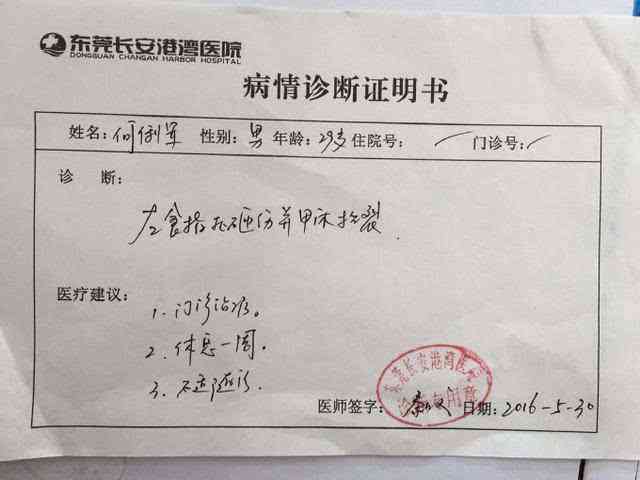 东莞长安港湾医院
DONGGUAN CHANGAN HARBOR HOSPITAL
病情诊断证明书
姓名：何俐军 性别：男 年龄：29岁 住院号： / 门诊号： /
诊 断：
左食指砸伤并甲床挫裂.
医疗建议：
1. 门诊治疗。
2. 休息一周。
3. 不适随诊.
东莞长安港湾医院
医师签字： 日期：2016-5-30